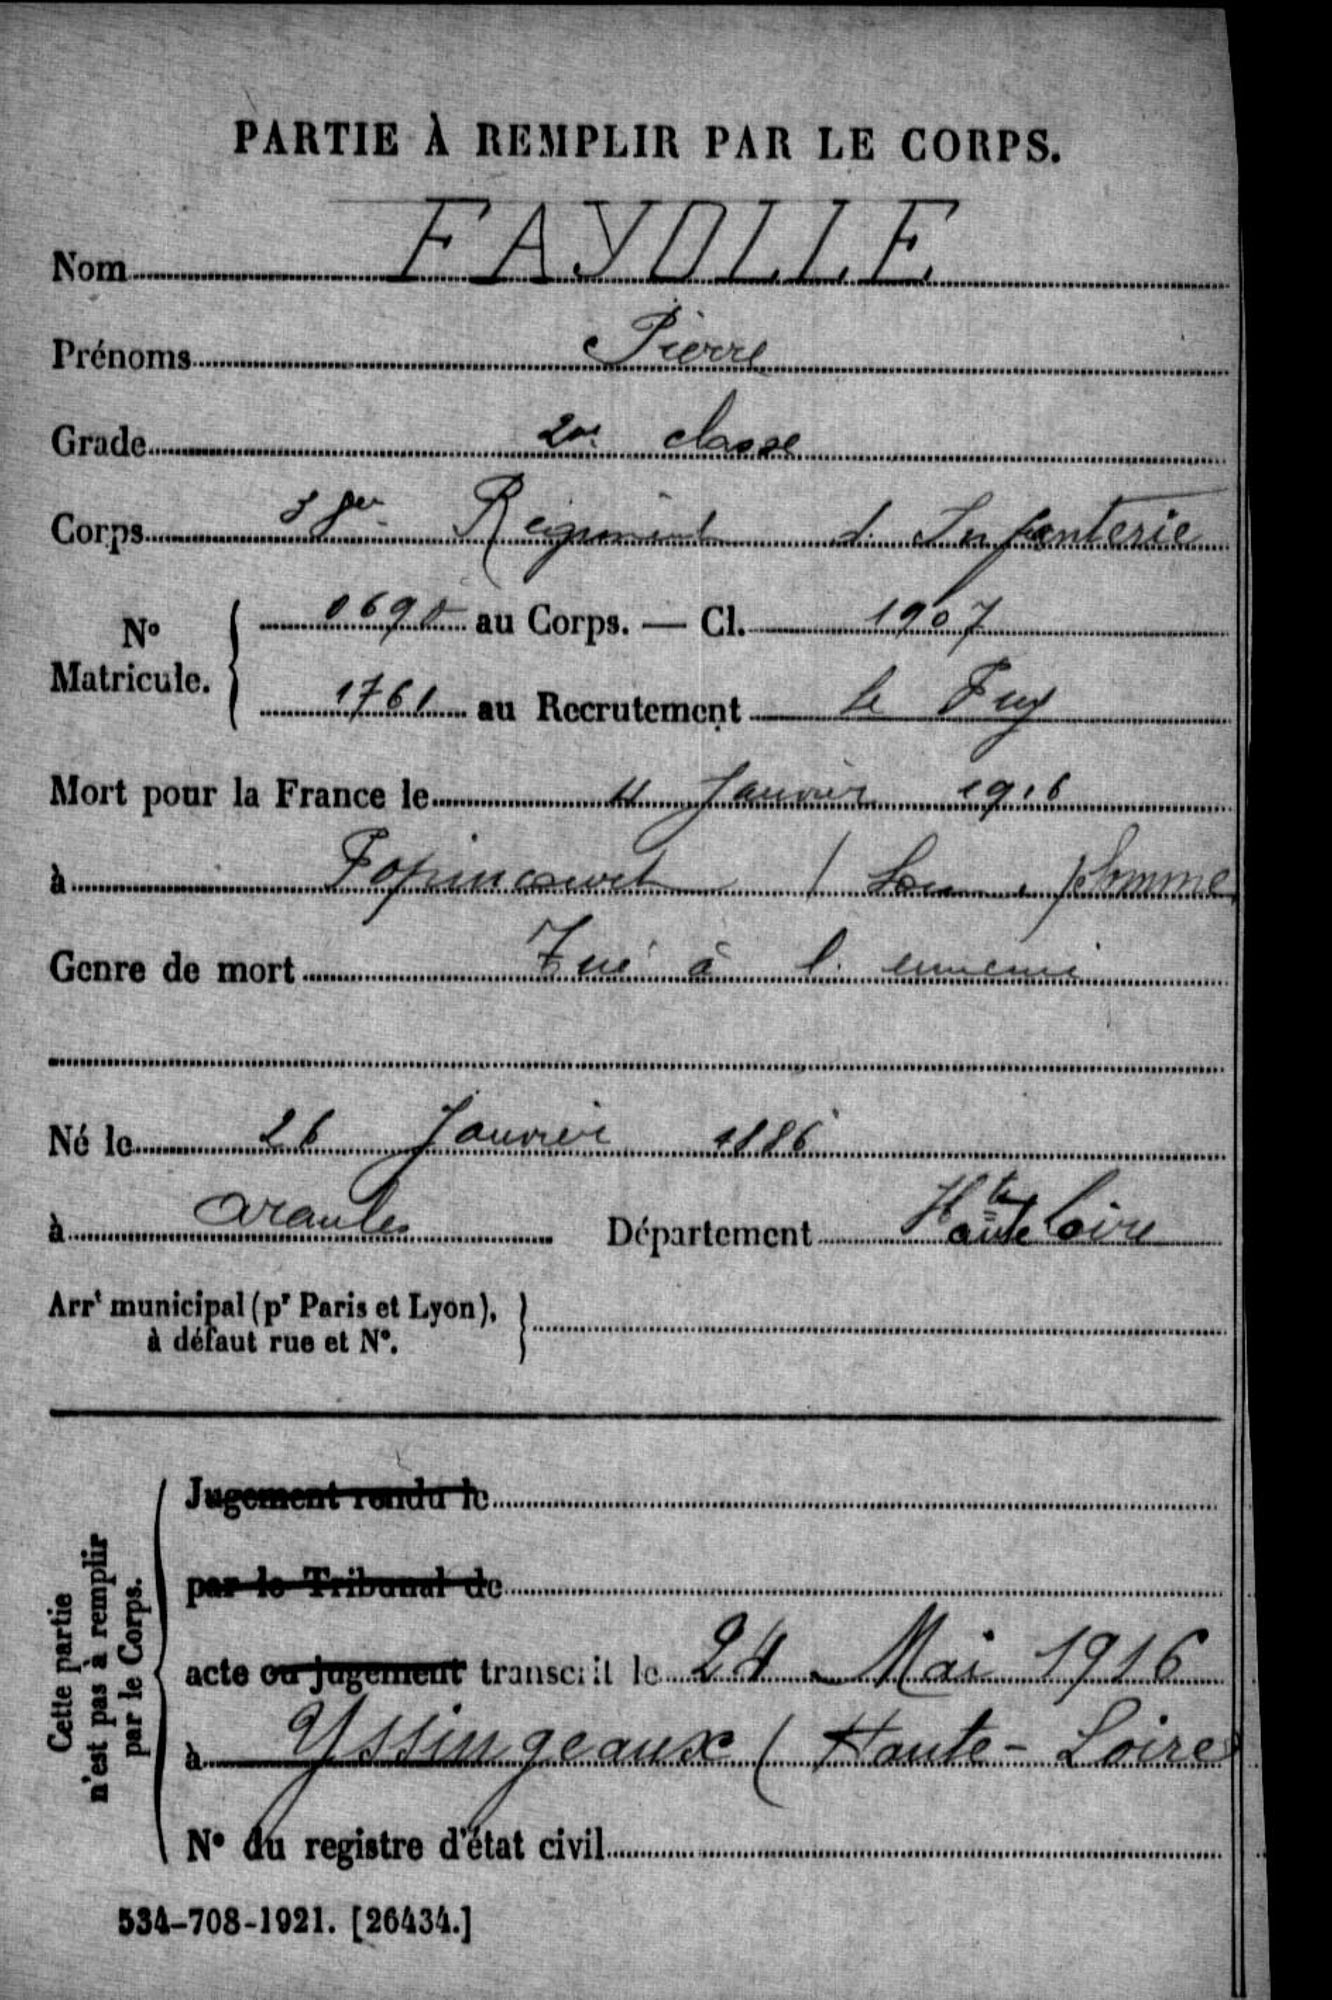 PARTIE À REMPLIR PAR LE CORPS.
Nom FAYOLLE
Prénoms Pierre
Grade 2e classe
Corps 38e Régiment d'Infanterie
No Matricule. 0690 au Corps. — Cl. 1907
1761 au Recrutement le Puy
Mort pour la France le 11 Janvier 1916
à Popincourt / Somme
Genre de mort Tué à l'ennemi
Né le 26 Janvier 1886
à Araules Département Hte Loire
Arrt municipal (pr Paris et Lyon),
à défaut rue et No.
Cette partie
n'est pas à remplir
par le Corps.
Jugement rendu le
par le Tribunal de
acte ou jugement transcrit le 24 Mai 1916
à Yssingeaux (Haute-Loire)
No du registre d'état civil
534-708-1921. [26434.]